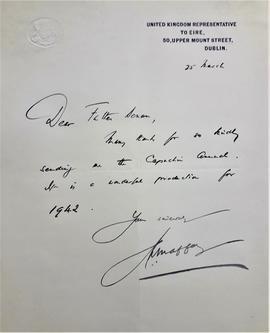 UNITED KINGDOM REPRESENTATIVE
TO EIRE,
50, UPPER MOUNT STREET,
DUBLIN.
25 March
Dear Father Senan,
Many thanks for so kindly
sending me the Capuchin Annual.
It is a wonderful production for
1942.
Yours sincerely